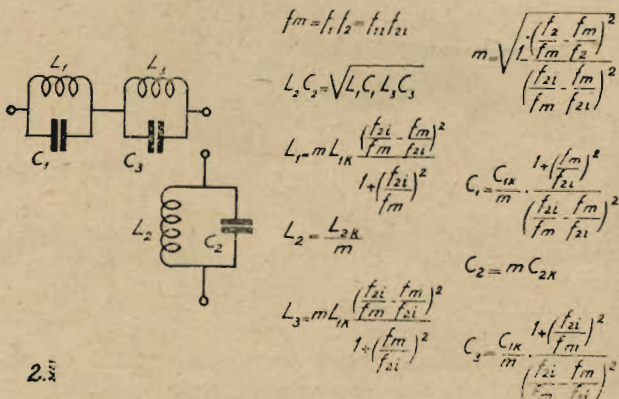 L₁ L₃
C₁ C₃
L₂ C₂
2.
fm = f₁ f₂ = f₁₂ f₂ᵢ
L₂ C₂ = √(L₁ C₁ L₃ C₃)
L₁ = m L₁ₖ ((f₂ᵢ/fm - fm/f₂ᵢ)²)/(1 + (f₂ᵢ/fm)²)
L₂ = L₂ₖ/m
L₃ = m L₁ₖ ((f₂ᵢ/fm - fm/f₂ᵢ)²)/(1 + (fm/f₂ᵢ)²)
m = √(1 · (f₂/fm - fm/f₂)²/(f₂ᵢ/fm - fm/f₂ᵢ)²)
C₁ = C₁ₖ/m · (1 + (fm/f₂ᵢ)²)/((f₂ᵢ/fm - fm/f₂ᵢ)²)
C₂ = m C₂ₖ
C₃ = C₁ₖ/m · (1 + (f₂ᵢ/fm)²)/((f₂ᵢ/fm - fm/f₂ᵢ)²)